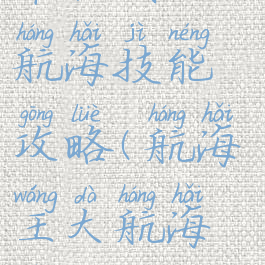 háng hǎi jì néng
航海技能
gōng lüè háng hǎi
攻略(航海
wáng dà háng hǎi
王大航海